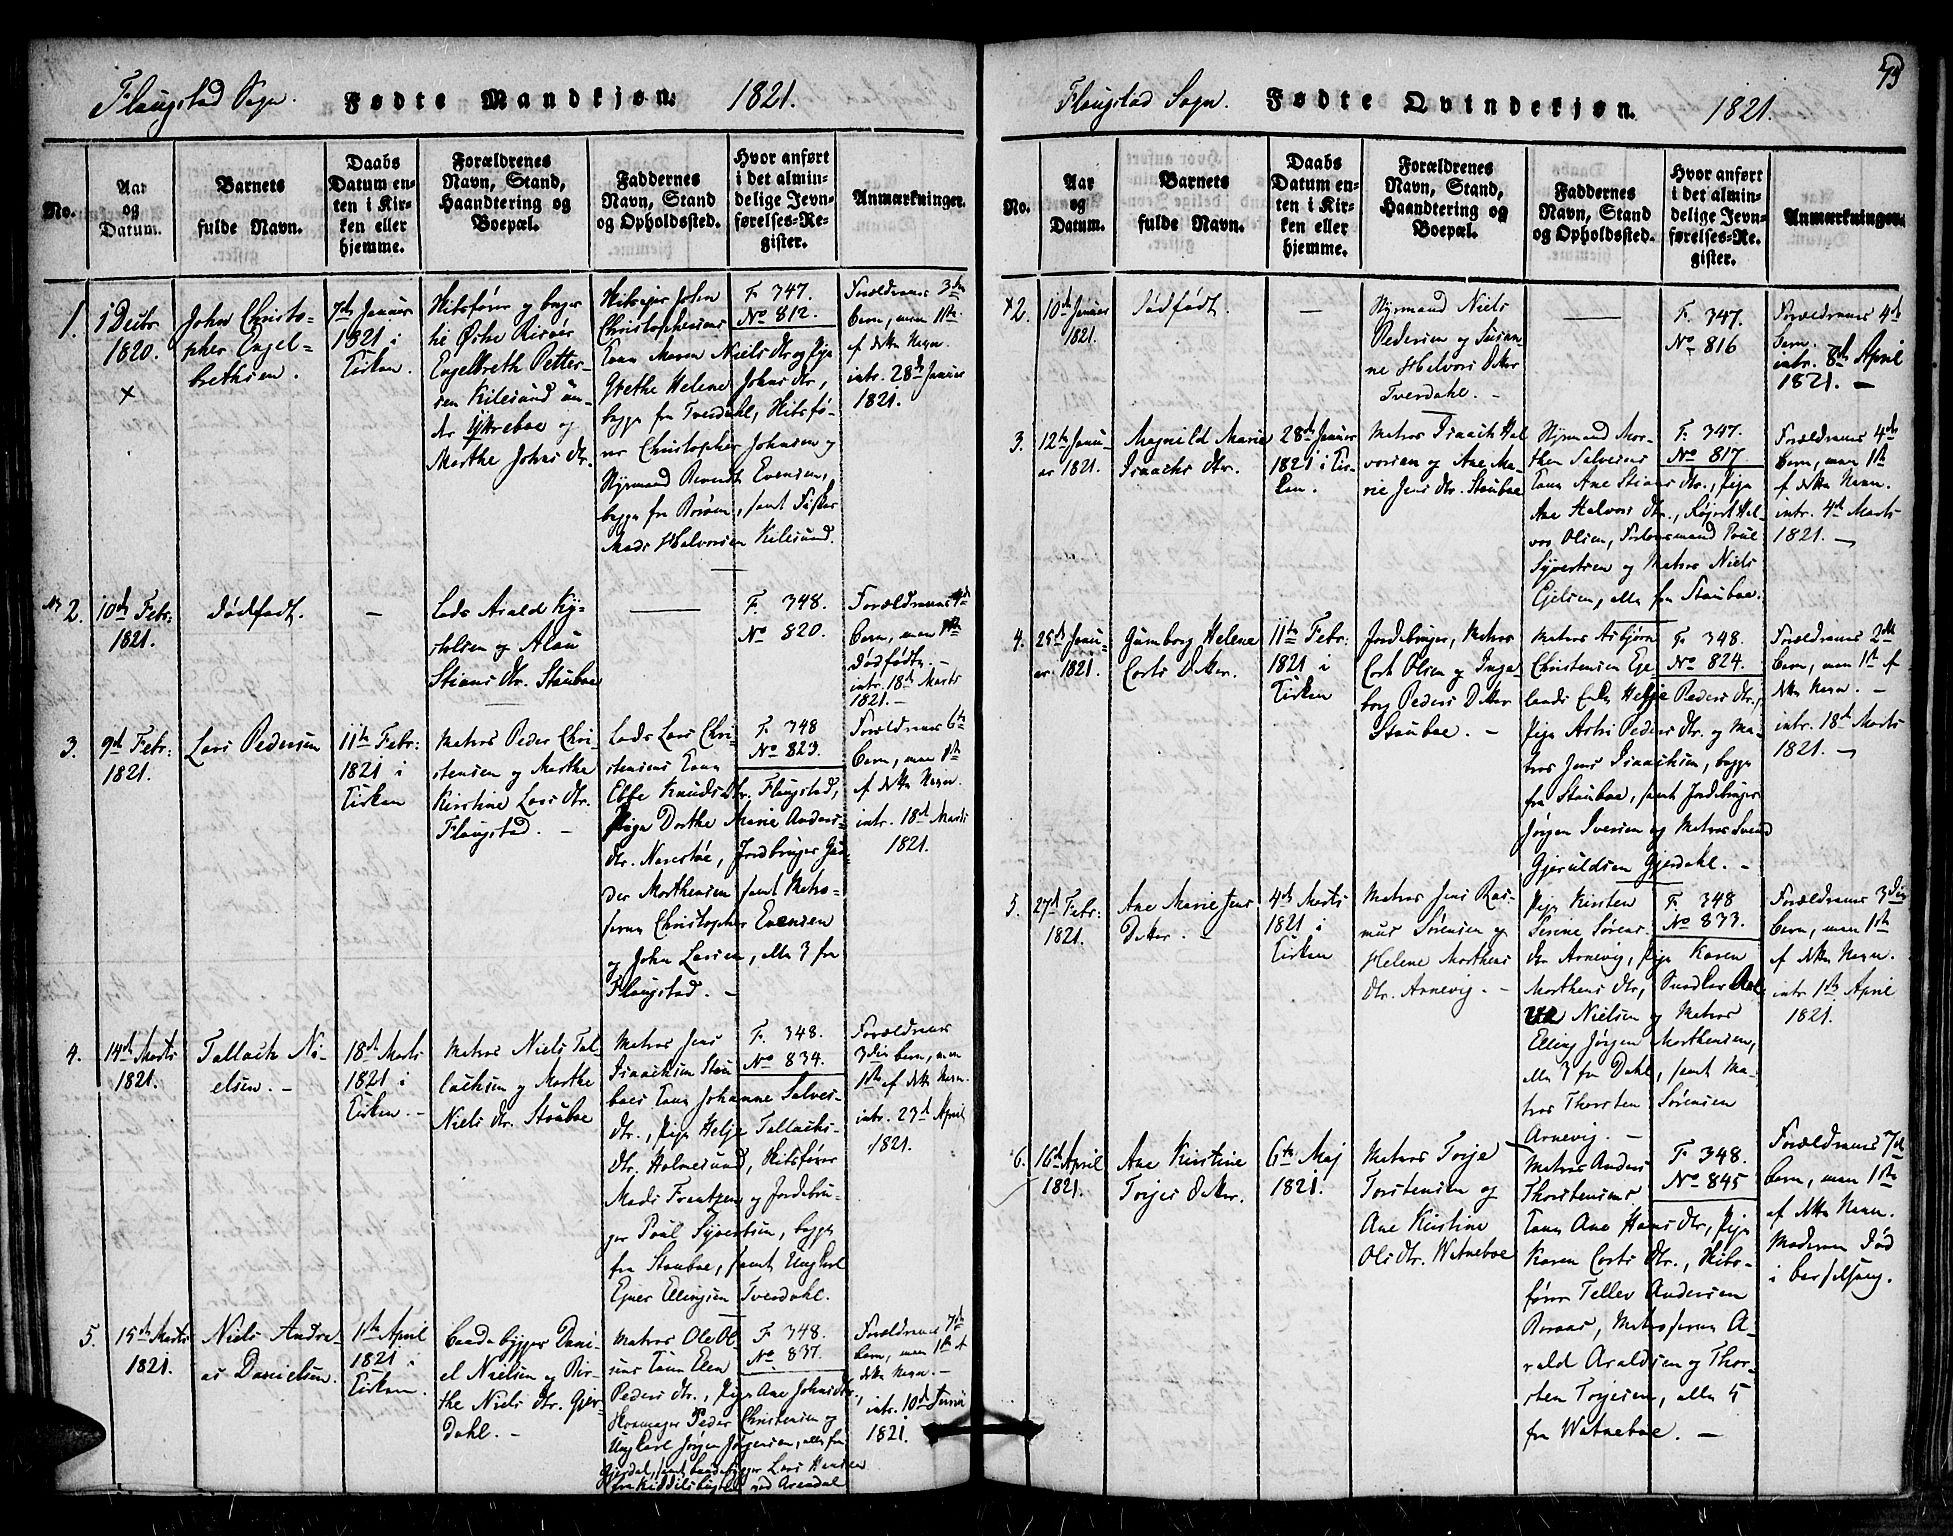 Flaugstad Sogn. Fødte Mandkjøn. 1821.
No.
Aar
og
Datum.
Barnets
fulde Navn.
Daabs
Datum en-
ten i Kir-
ken eller
hjemme.
Forældrenes
Navn, Stand,
Haandtering og
Boepæl.
Faddernes
Navn, Stand
og Opholdssted.
Hvor anført
i det almin-
delige Jevn-
førelses-Re-
gister.
Anmærkninger.
1.
1 Decbr
1820.
John Christo-
pher Engel-
brethsen.
7de Januar
1821 i
Kirken.
Engelbreth Petter-
sen Kilesund un-
Marthe Johns Dtr.
Christophersens
Kone Maren Niels Dtr og Pige
Grethe Helene Johns Dtr,
begge fra Tverdahl,
Christopher Johnsen og
Styrmand Berendt Evensen,
begge fra Borøen, samt Fisker
Mads Halvorsen Kilesund.
F. 347.
No 812.
Forældrenes 3die
Barn, men 1ste
af dette Navn.
intr. 28de Januar
1821.
2.
10de Febr:
1821.
Dødfødt.
—
Lods Arald Ky-
Stians Dtr. Stauboe
F. 348.
No 820.
Forældrenes
Barn, men 1ste
Dødfødte.—
intr. 18de Marts
1821.—
3.
9de Febr:
1821.
Lars Pedersen
11te Febr:
1821 i
Kirken
Matros Peder Chri-
stensen og Marthe
Kirstine Lars Dtr.
Flaugstad. —
Lods Lars Chri-
stensens Kone
Ebbe Knuds Dtr. Flaugstad,
Pige Dorthe Marie Anders-
Dtr. Narestøe, Jordbruger Gun-
der Morthensen samt Matro-
serne Christopher Evensen
og John Larsen, alle 3 fra
Flaugstad. —
F. 348
No 823.
Forældrenes 6te
Barn, men 1ste
af dette Navn.
intr. 18de Marts
1821.
4.
14de Marts
1821.
Tallack Ni-
elsen. —
18de Marts
1821 i
Kirken. —
Matros Niels Tal-
lachsen og Marthe
Niels Dtr. Stauboe
Matros Jens
Isaachsen Stau-
boes Kone Johanne Salves-
Dtr., Pige Helje Tallachs-
Dtr. Holmesund, Skibsfører
Mads Frantzen og Jordebru-
ger Poul Syvertsen, begge
fra Stauboe, samt Ungkarl
Ejner Ellingsen Tverdahl.
F. 348.
No 834.
Forældrenes
3die Barn, men
1ste af dette Navn.
intr. 23de April
1821.
5.
15de Marts
1821.
Niels Andre-
as Danielsen.
1ste April
1821 i
Kirken.
Baadebygger Dani-
el Nielsen og Bir-
the Niels Dtr. Gjer-
dahl. —
Matros Ole Ol-
sens Kone Elen
Peders Dtr., Pige Ane Johns Dtr,
Peder Christensen og
Ungkarl Jørgen Jørgensen, alle fra
Gjerdal, samt Baadebygger Lars Hansen
ved Arendal
F. 348.
No 837.
Forældrenes 7de
Barn, men 1ste af
dette Navn.—
intr. 10de Junii
1821.
73
Flaugstad Sogn. Fødte Qvindekjøn. 1821.
No.
Aar
og
Datum.
Barnets
fulde Navn.
Daabs
Datum en-
ten i Kir-
ken eller
hjemme.
Forældrenes
Navn, Stand,
Haandtering og
Boepæl.
Faddernes
Navn, Stand
og Opholdssted.
Hvor anført
i det almin-
delige Jevn-
førelses-Re-
gister.
Anmærkninger.
2.
10de Januar
1821.
Dødfødt.
—
Styrmand Niels
Pedersen og Susan-
ne Halvors Datter
Tverdahl. —
F. 347.
No 816
Forældrenes 4de
Barn.
intr. 8de April
1821. —
3.
12te Janu-
ar 1821.
Magnild Marie
Isaachs Dtr.
28de Januar
1821 i Kir-
ken.
Matros Isaach Hal-
vorsen og Ane Ma-
rie Jens Dtr. Stauboe
Styrmand Mor-
then Salvesens
Kone Ane Stians Dtr., Pige
Ane Halvors Dtr., Hal-
vor Olsen, Poul
Syvertsen og Matros Niels
Ejelsen, alle fra Stauboe.
F. 347.
No 817
Forældrenes 4de
Barn, men 1ste
af dette Navn.
intr. 4de Marts
1821. —
4.
25de Janu-
ar 1821.
Gumborg Helene
Corts Datter.
11te Febr:
1821 i
Kirken
Jordebruger, Matros
Cort Olsen og Inge-
borg Peders Datter
Stauboe. —
Matros Asbjørn
Christensen Eje-
lands Enke Helje Peders Dtr.,
Pige Astri Peders Dtr. og Ma-
tros Jens Isaachsen, begge
fra Stauboe, samt Jordebruger
Jørgen Iversen og Matros Svend
Gjeruldsen Gjerdahl. —
F. 348.
No 824.
Forældrenes 2det
Barn, men 1ste af
dette Navn. —
intr. 18de Marts
1821. —
5.
27de Febr:
1821.
Ane Marie Jens
Datter. —
4de Marts
1821 i
Kirken
Matros Jens Ras-
mus Sørensen og
Helene Morthens
Dtr. Arnevig. —
Pige Kirsten
Serine Sørens
Dtr Arnevig, Pige Karen
Morthens Dtr,
Nielsen og Matros
Elling Jørgen Morthensen,
alle 3 fra Dahl, samt Ma-
tros Thorsten Sørensen
Arnevig. —
F. 348
No 833.
Forældrenes 3die
Barn, men 1ste
af dette Navn.
intr. 1ste April
1821.
6.
16de April
1821.
Ane Kirstine
Torjes Datter.
6te Maj
1821.
Matros Torje
Torstensen og
Ane Kirstine
Ols Dtr. Watneboe
Matros Anders
Thorstensens
Kone Ane Hans Dtr, Pige
Karen Corts Dtr., Skibs-
fører Tellev Andersen
Boraas, Matroserne A-
rald Araldsen og Thor-
sten Torjesen, alle 5
fra Watneboe. —
F. 348.
No 845
Forældrenes 7de
Barn, men 1ste
af dette Navn.
Moderen død
i Barselseng.